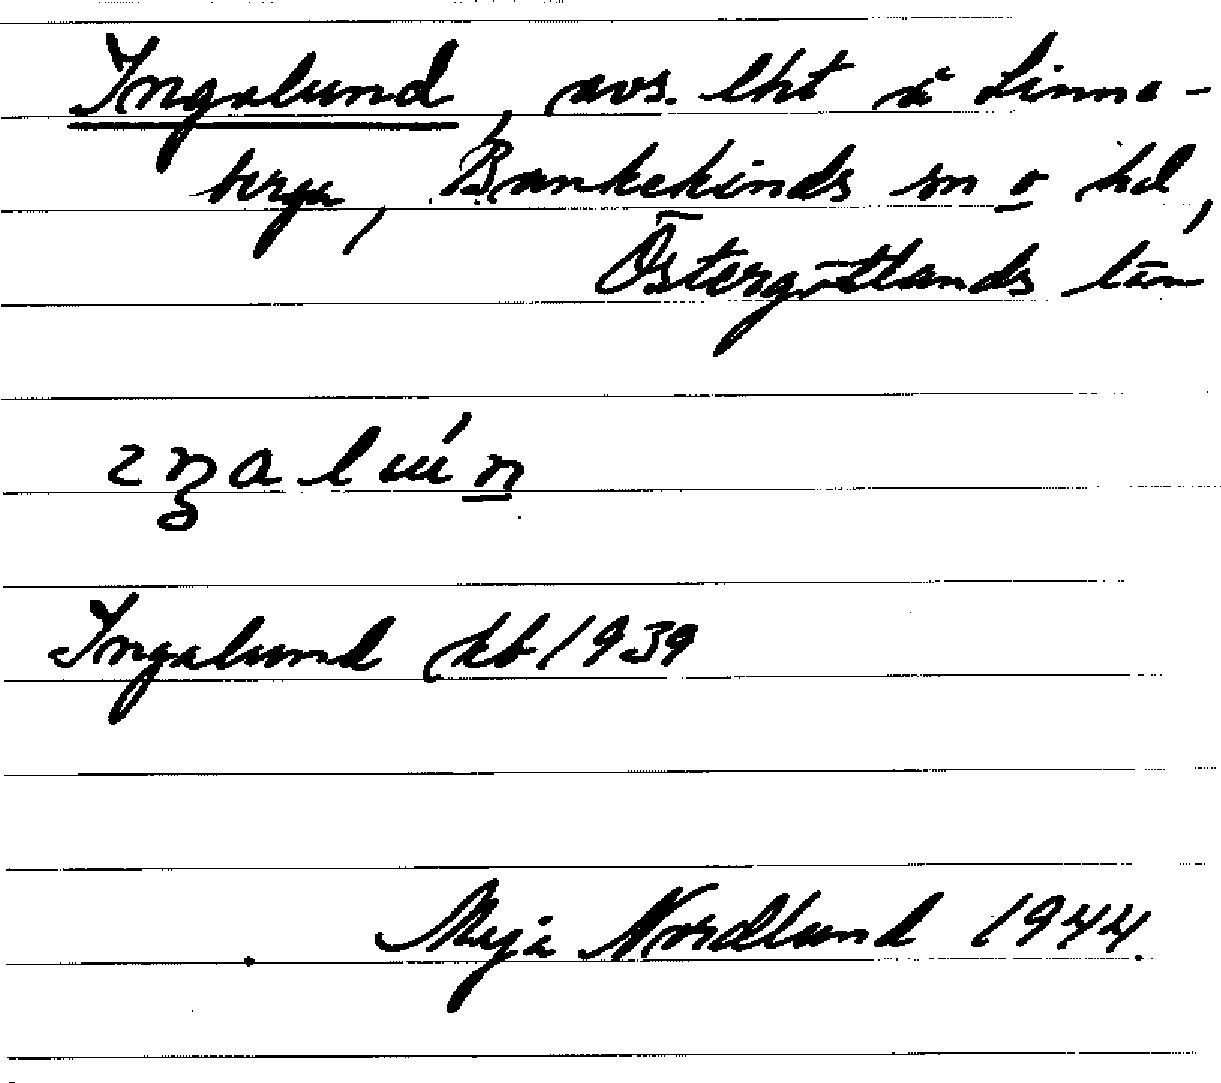 Ingalund, avs. lht å Linna-
berga, Bankekinds sn o hd,
Östergötlands län
Ingalund kb 1939
Maja Nordlund 1944.